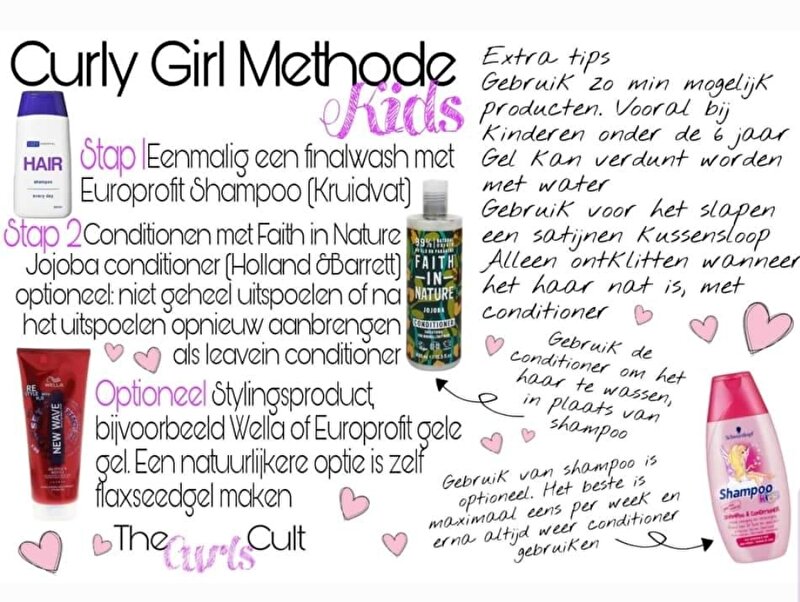 Curly Girl Methode
Kids
Stap 1 Eenmalig een finalwash met
Europrofit Shampoo (Kruidvat)
Stap 2 Conditionen met Faith in Nature
Jojoba conditioner (Holland &Barrett)
optioneel: niet geheel uitspoelen of na
het uitspoelen opnieuw aanbrengen
als leavein conditioner
Optioneel Stylingsproduct,
bijvoorbeeld Wella of Europrofit gele
gel. Een natuurlijkere optie is zelf
flaxseedgel maken
The Curls Cult
Extra tips
Gebruik zo min mogelijk
producten. Vooral bij
Kinderen onder de 6 jaar
Gel Kan verdunt worden
met water
Gebruik voor het slapen
een satijnen Kussensloop
Alleen ontKlitten wanneer
het haar nat is, met
conditioner
Gebruik de
conditioner om het
haar te wassen,
in plaats van
shampoo
Gebruik van shampoo is
optioneel. Het beste is
maximaal eens per week en
erna altijd weer conditioner
gebruiken
HAIR
shampoo
every day
99%
FAITH
IN
NATURE
JOJOBA
CONDITIONER
WELLA
NEW WAVE
Schwarzkopf
Shampoo
Shampoo & Conditioner